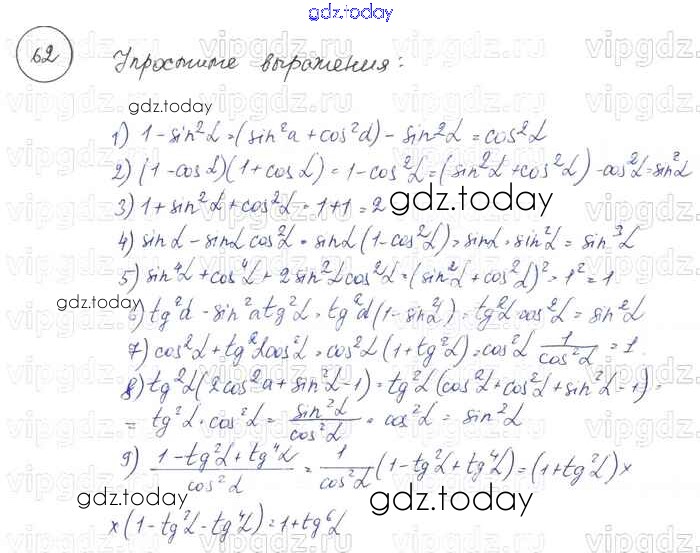 gdz.today
62 Упростите выражения:
gdz.today
1) 1-sin²α=(sin²a+cos²α)-sin²α=cos²α
2) (1-cosα)(1+cosα)=1-cos²α=(sin²α+cos²α)-cos²α=sin²α
3) 1+sin²α+cos²α=1+1=2
gdz.today
4) sinα-sinαcos²α=sinα(1-cos²α)=sinα·sin²α=sin³α
5) sin⁴α+cos⁴α+2sin²αcos²α=(sin²α+cos²α)²=1²=1.
gdz.today
6) tg²α-sin²atg²α=tg²α(1-sin²α)=tg²α·cos²α=sin²α
7) cos²α+tg²αcos²α=cos²α(1+tg²α)=cos²α 1/cos²α=1.
8) tg²α(2cos²a+sin²α-1)=tg²α(cos²α+cos²α+sin²α-1)=
=tg²α·cos²α=sin²α/cos²α·cos²α=sin²α
9) (1-tg²α+tg⁴α)/cos²α=1/cos²α(1-tg²α+tg⁴α)=(1+tg²α)×
gdz.today gdz.today
×(1-tg²α-tg⁴α)=1+tg⁶α